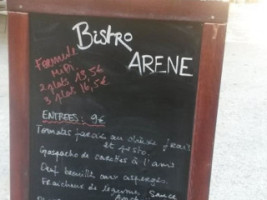 Bistro
ARENE
Formule
Midi
2 plats 13,5€
3 plats 16,5€
ENTREES: 9€
Tomates farcis au chèvre frais
et pesto
Gaspacho de carottes à l'
Oeuf brouillé aux asperges
Fraicheur de légumes sauce